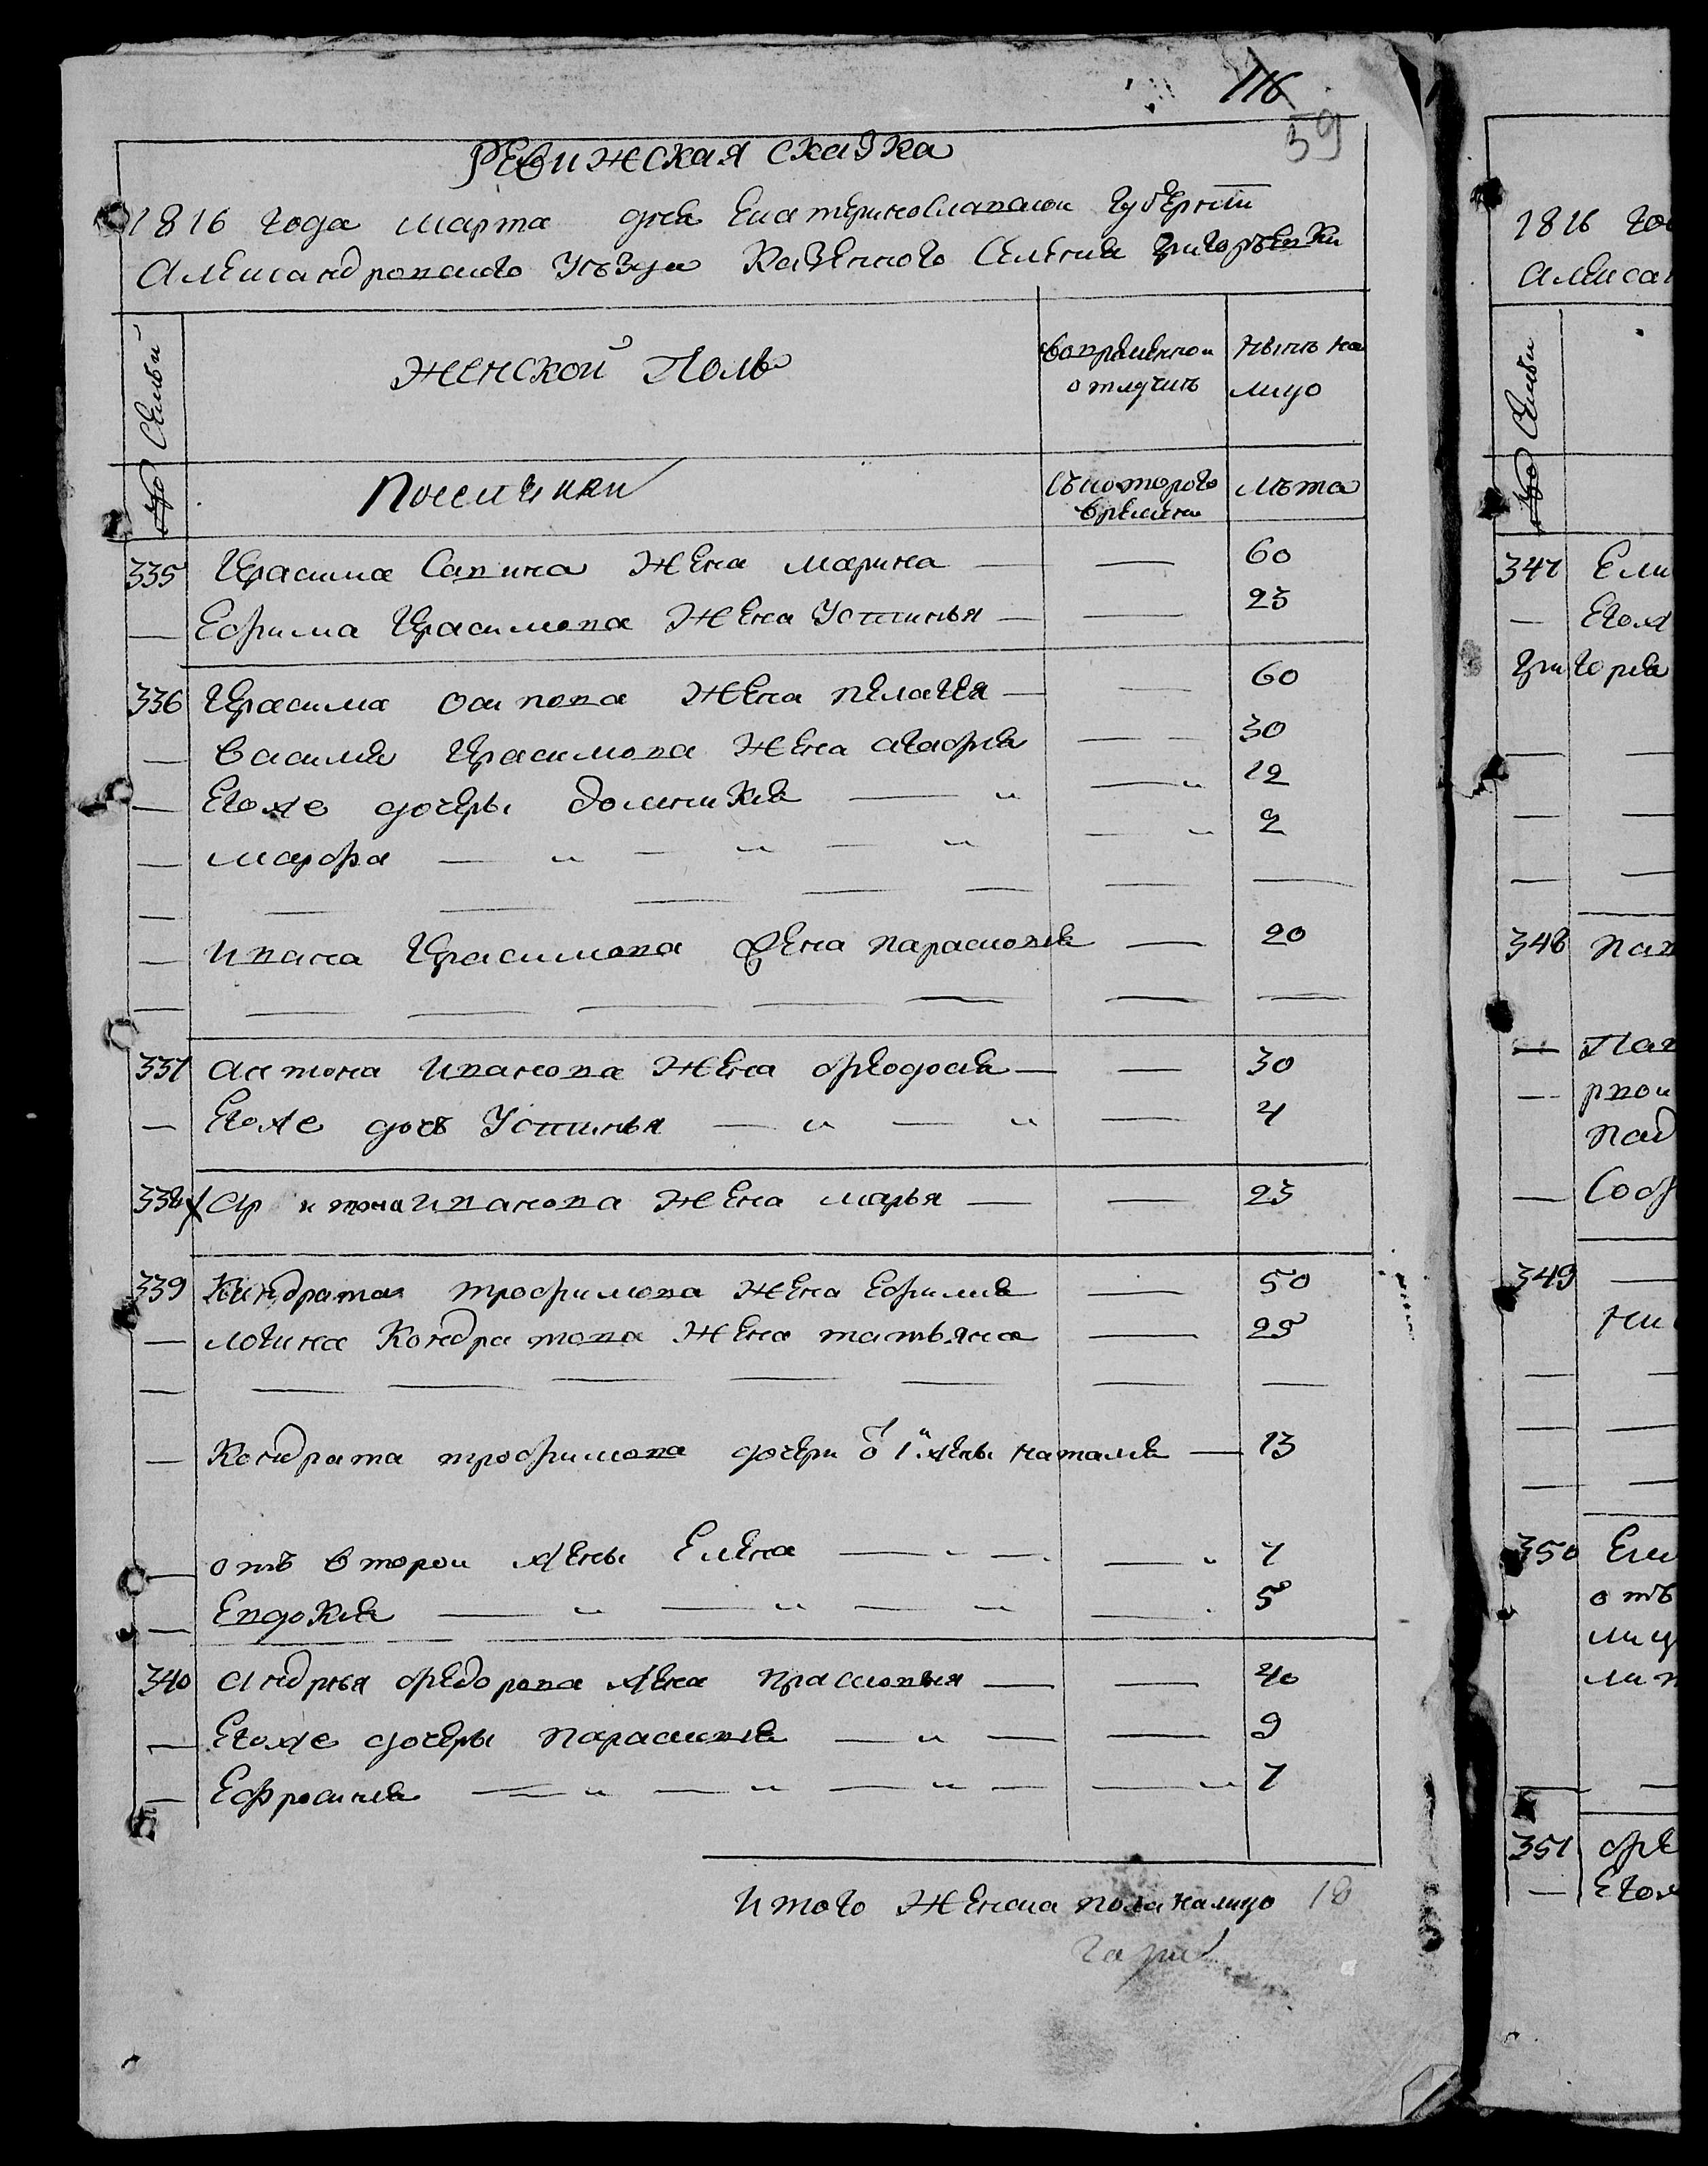 116
59
Ревижская сказка
1816 года марта дня Екатеринославской губернии
Александровского уезда Казенного Селения Григорьевки
№ Семьи
Женской Полъ
вовременной отлучке
ныне на лицо
Поселянки
съ которого времени
лета
335 Герасима Савина жена марина — — 60
— Ефима Герасимова жена Устинья — — 23
336 Герасима осипова жена пелагея — — 60
— василия Герасимова жена агафия — — 30
— Егоже дочеры домникия — " — " 12
— марфа — " — " — " — " 2
— — — — — — — —
— ивана Герасимова жена парасковия — 20
— — — — — — — —
337 антона иванова жена феодосия — — 30
— Егоже дочь Устинья — " — " — 4
338 иванова жена марья — — 23
339 Кондрата трофимова жена Ефимия — 50
— логина Кондратова жена татьяна — 25
— — — — — — — —
— Кондрата трофимова дочери о 1й жены наталия — 13
— отъ второй жены Елена — " — . — " 7
— Евдокия — " — " — " — . 5
340 андрея федорова жена прасковья — — 40
— Егоже дочеры парасковия — " — — 9
— Ефросиния — " — " — " — — " 7
итого женска пола налицо 18
1816 го
Алексан
№ Семьи
347 Ели
— Егож
григория
— —
— —
— —
348 пав
— Пав
—
— Соф
349 —
— —
— —
— —
350
отъ
— —
351 фе
— Егож